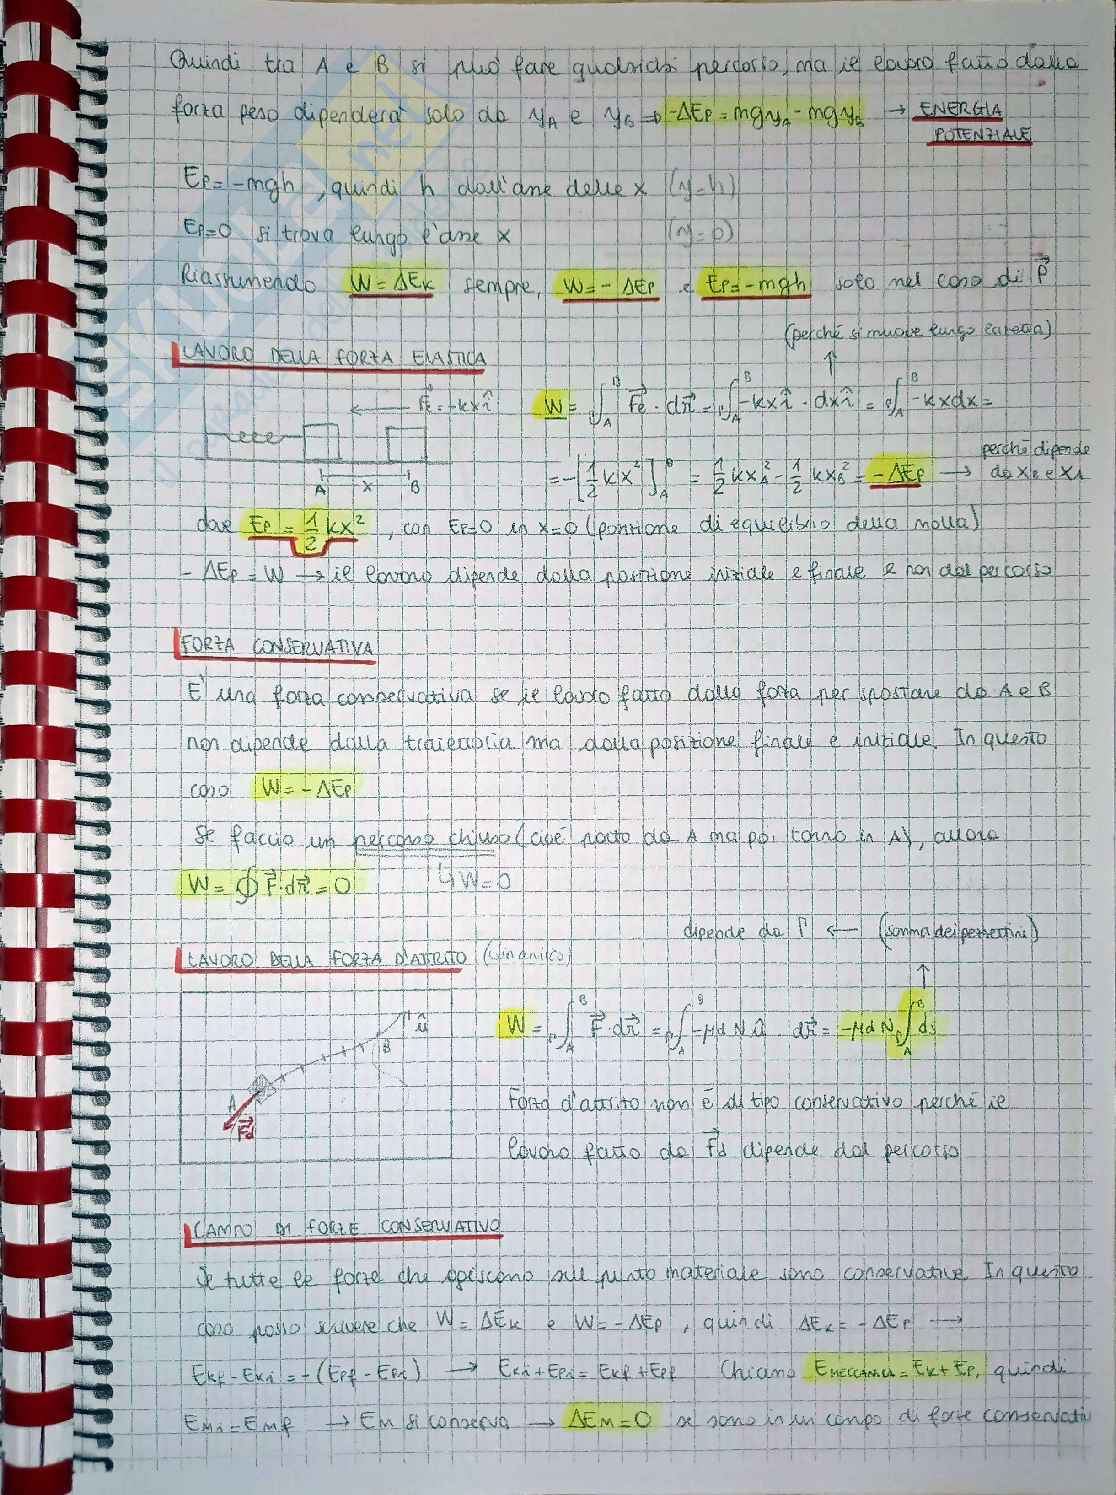 Quindi tra A e B si può fare qualsiasi percorso, ma il lavoro fatto dalla
forza peso dipenderà solo da yA e yB → -ΔEp = mgyA - mgyB → ENERGIA
POTENZIALE
Ep = -mgh, quindi h dall'asse delle x (y=h)
Ep=0 si trova lungo l'asse x (y=0)
Riassumendo W = ΔEk sempre, W = - ΔEp e Ep = -mgh solo nel caso di P⃗
(perché si muove lungo la retta)
LAVORO DELLA FORZA ELASTICA
F⃗e = -kxî W = ∫_A^B F⃗e · dr⃗ = ∫_A^B -kxî · dxî = ∫_A^B -kxdx =
A x B = -[1/2 kx²]_A^B = 1/2 kxA² - 1/2 kxB² = -ΔEp → perché dipende
dove Ep = 1/2 kx², con Ep=0 in x=0 (posizione di equilibrio della molla)
- ΔEp = W → il lavoro dipende dalla posizione iniziale e finale e non dal percorso
FORZA CONSERVATIVA
È una forza conservativa se il lavoro fatto dalla forza per spostare da A e B
non dipende dalla traiettoria ma dalla posizione finale e iniziale. In questo
caso W = - ΔEp
Se faccio un percorso chiuso (cioè parto da A ma poi torno in A), allora
W = ∮ F⃗·dr⃗ = 0 ↳ W=0
dipende da Γ ← (somma dei pezzettini)
LAVORO DELLA FORZA D'ATTRITO (dinamico)
û
B
W = ∫_A^B F⃗·dr⃗ = ∫_A^B -μd N û dr⃗ = -μd N ∫_A^B ds
A
F⃗d
Forza d'attrito non è di tipo conservativo perché il
lavoro fatto da F⃗d dipende dal percorso
CAMPO DI FORZE CONSERVATIVO
Se tutte le forze che agiscono sul punto materiale sono conservative. In questo
caso posso scrivere che W = ΔEk e W = - ΔEp, quindi ΔEk = - ΔEp →
Ekf - Eki = -(Epf - Epi) → Eki + Epi = Ekf + Epf Chiamo Emeccanica = Ek + Ep, quindi
Emi = Emf → Em si conserva → ΔEm = 0 se sono in un campo di forze conservati